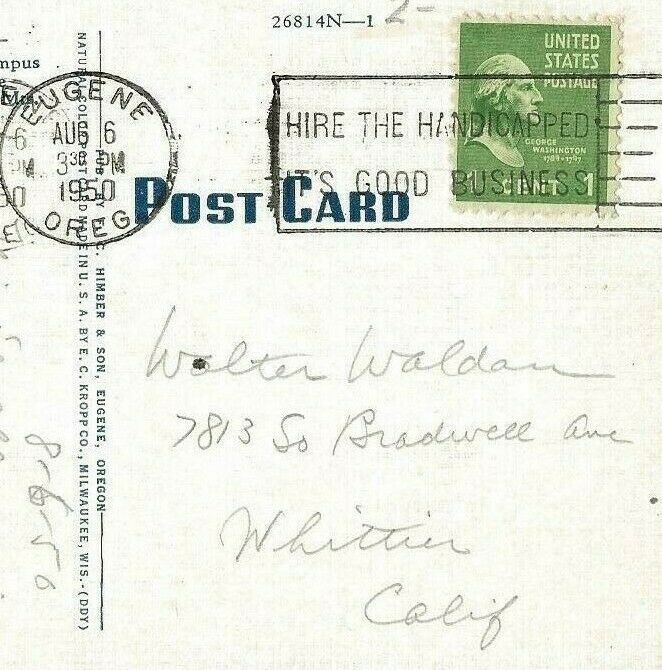 26814N—1
2-
UNITED
STATES
POSTAGE
GEORGE
WASHINGTON
1789-1797
1 CENT 1
mpus
EUGENE
AUG 6
3 30 PM
1950
OREG
HIRE THE HANDICAPPED
IT'S GOOD BUSINESS
POST CARD
C. HIMBER & SON, EUGENE, OREGON
NATURAL COLOR POST CARD MADE IN U. S. A. BY E. C. KROPP CO., MILWAUKEE, WIS.-(DDY)
8-6-50
Walter Waldan
7813 So Bradwell Ave
Whittier
Calif